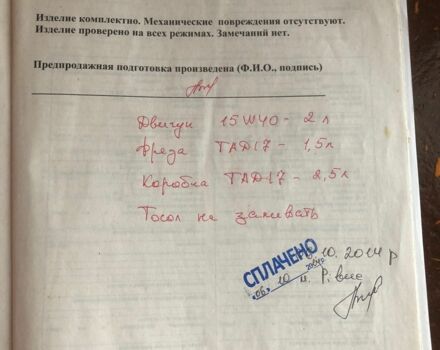 Изделие комплектно. Механические повреждения отсутствуют.
Изделие проверено на всех режимах. Замечаний нет.
Предпродажная подготовка произведена (Ф.И.О., подпись)
Двигун 15W40 - 2 л
Фреза ТАД17 - 1,5л
Коробка ТАД17 - 2,5л
Тосол не заливать
10. 2014 р
СПЛАЧЕНО
"06" 10
м. Рівне